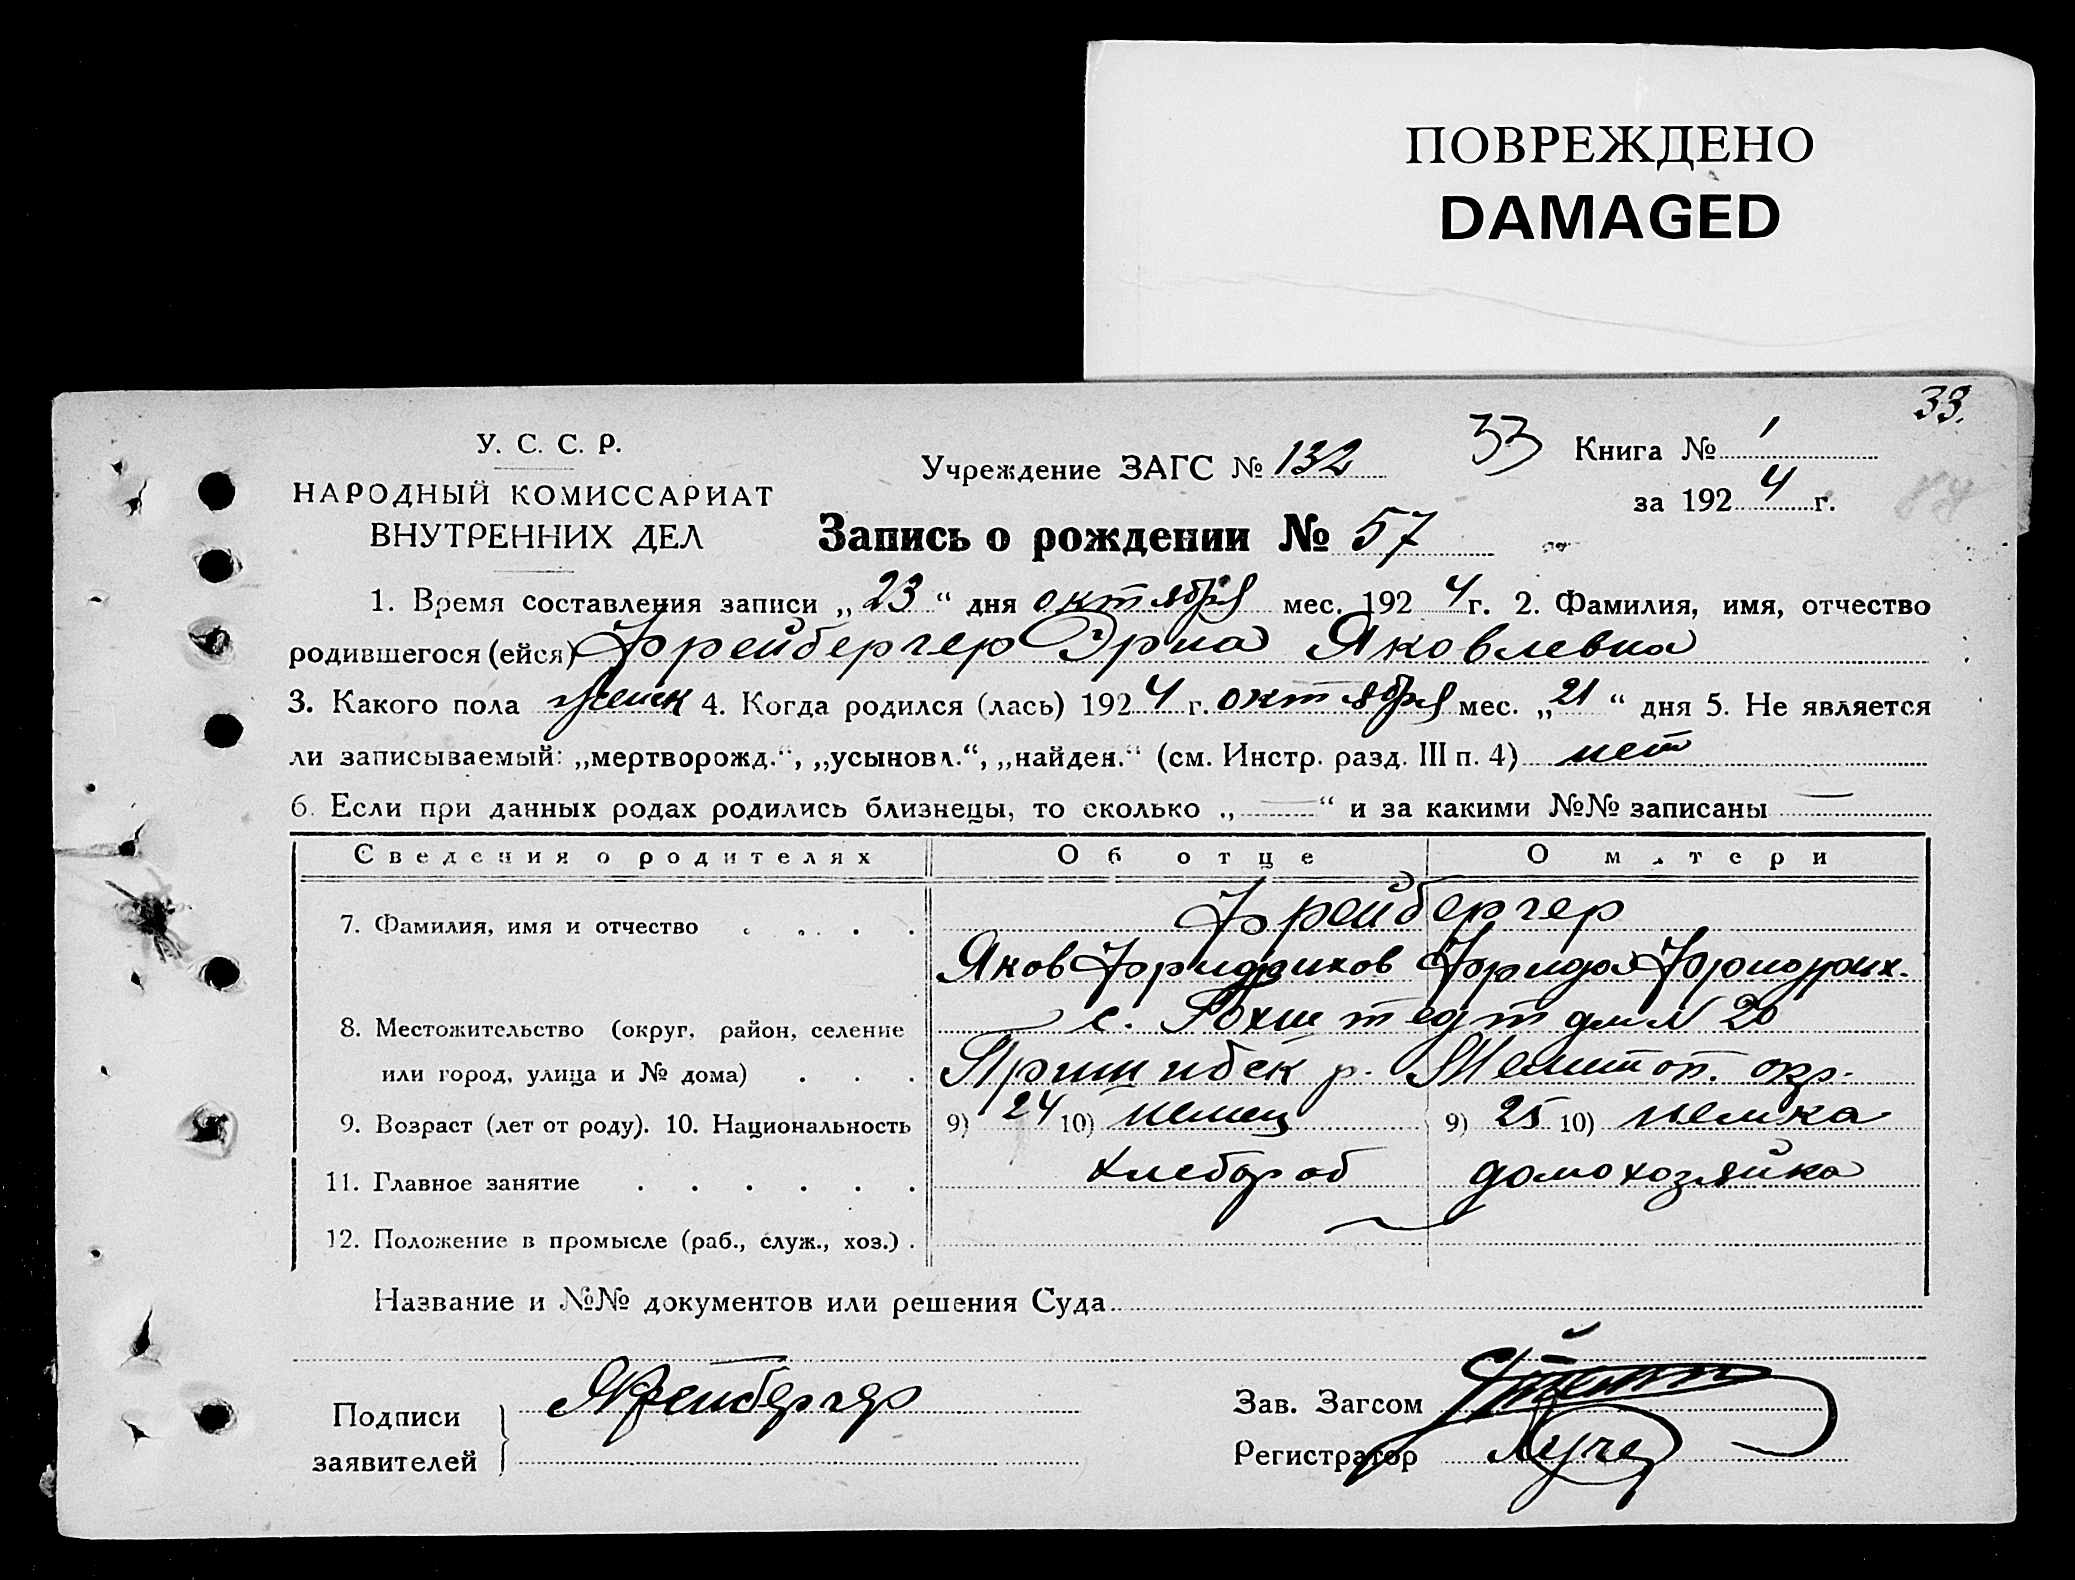 ПОВРЕЖДЕНО
DAMAGED
33.
У. С. С. Р.
НАРОДНЫЙ КОМИССАРИАТ
ВНУТРЕННИХ ДЕЛ
Учреждение ЗАГС № 132
33
Книга № 1
за 1924 г.
Запись о рождении № 57
1. Время составления записи „23“ дня октября мес. 1924 г. 2. Фамилия, имя, отчество
родившегося (ейся) Фрейбергер Эрна Яковлевна
3. Какого пола женск 4. Когда родился (лась) 1924 г. октября мес. „21“ дня 5. Не является
ли записываемый: „мертворожд.“, „усыновл.“, „найден.“ (см. Инстр. разд. III п. 4) нет
6. Если при данных родах родились близнецы, то сколько „—“ и за какими №№ записаны —
Сведения о родителях Об отце О матери
7. Фамилия, имя и отчество . . . . Фрейбергер
Яков Фридрихов Фрида Фридрих.
8. Местожительство (округ, район, селение с. Гохштедт дом № 20
или город, улица и № дома) . . . Пришибск р. Мелитоп. окр.
9. Возраст (лет от роду). 10. Национальность 9) 24 10) немец 9) 25 10) немка
11. Главное занятие . . . . . . хлебороб домохозяйка
12. Положение в промысле (раб., служ., хоз.) . —
Название и №№ документов или решения Суда
Подписи
заявителей
ЯФрейбергер
Зав. Загсом
Регистратор